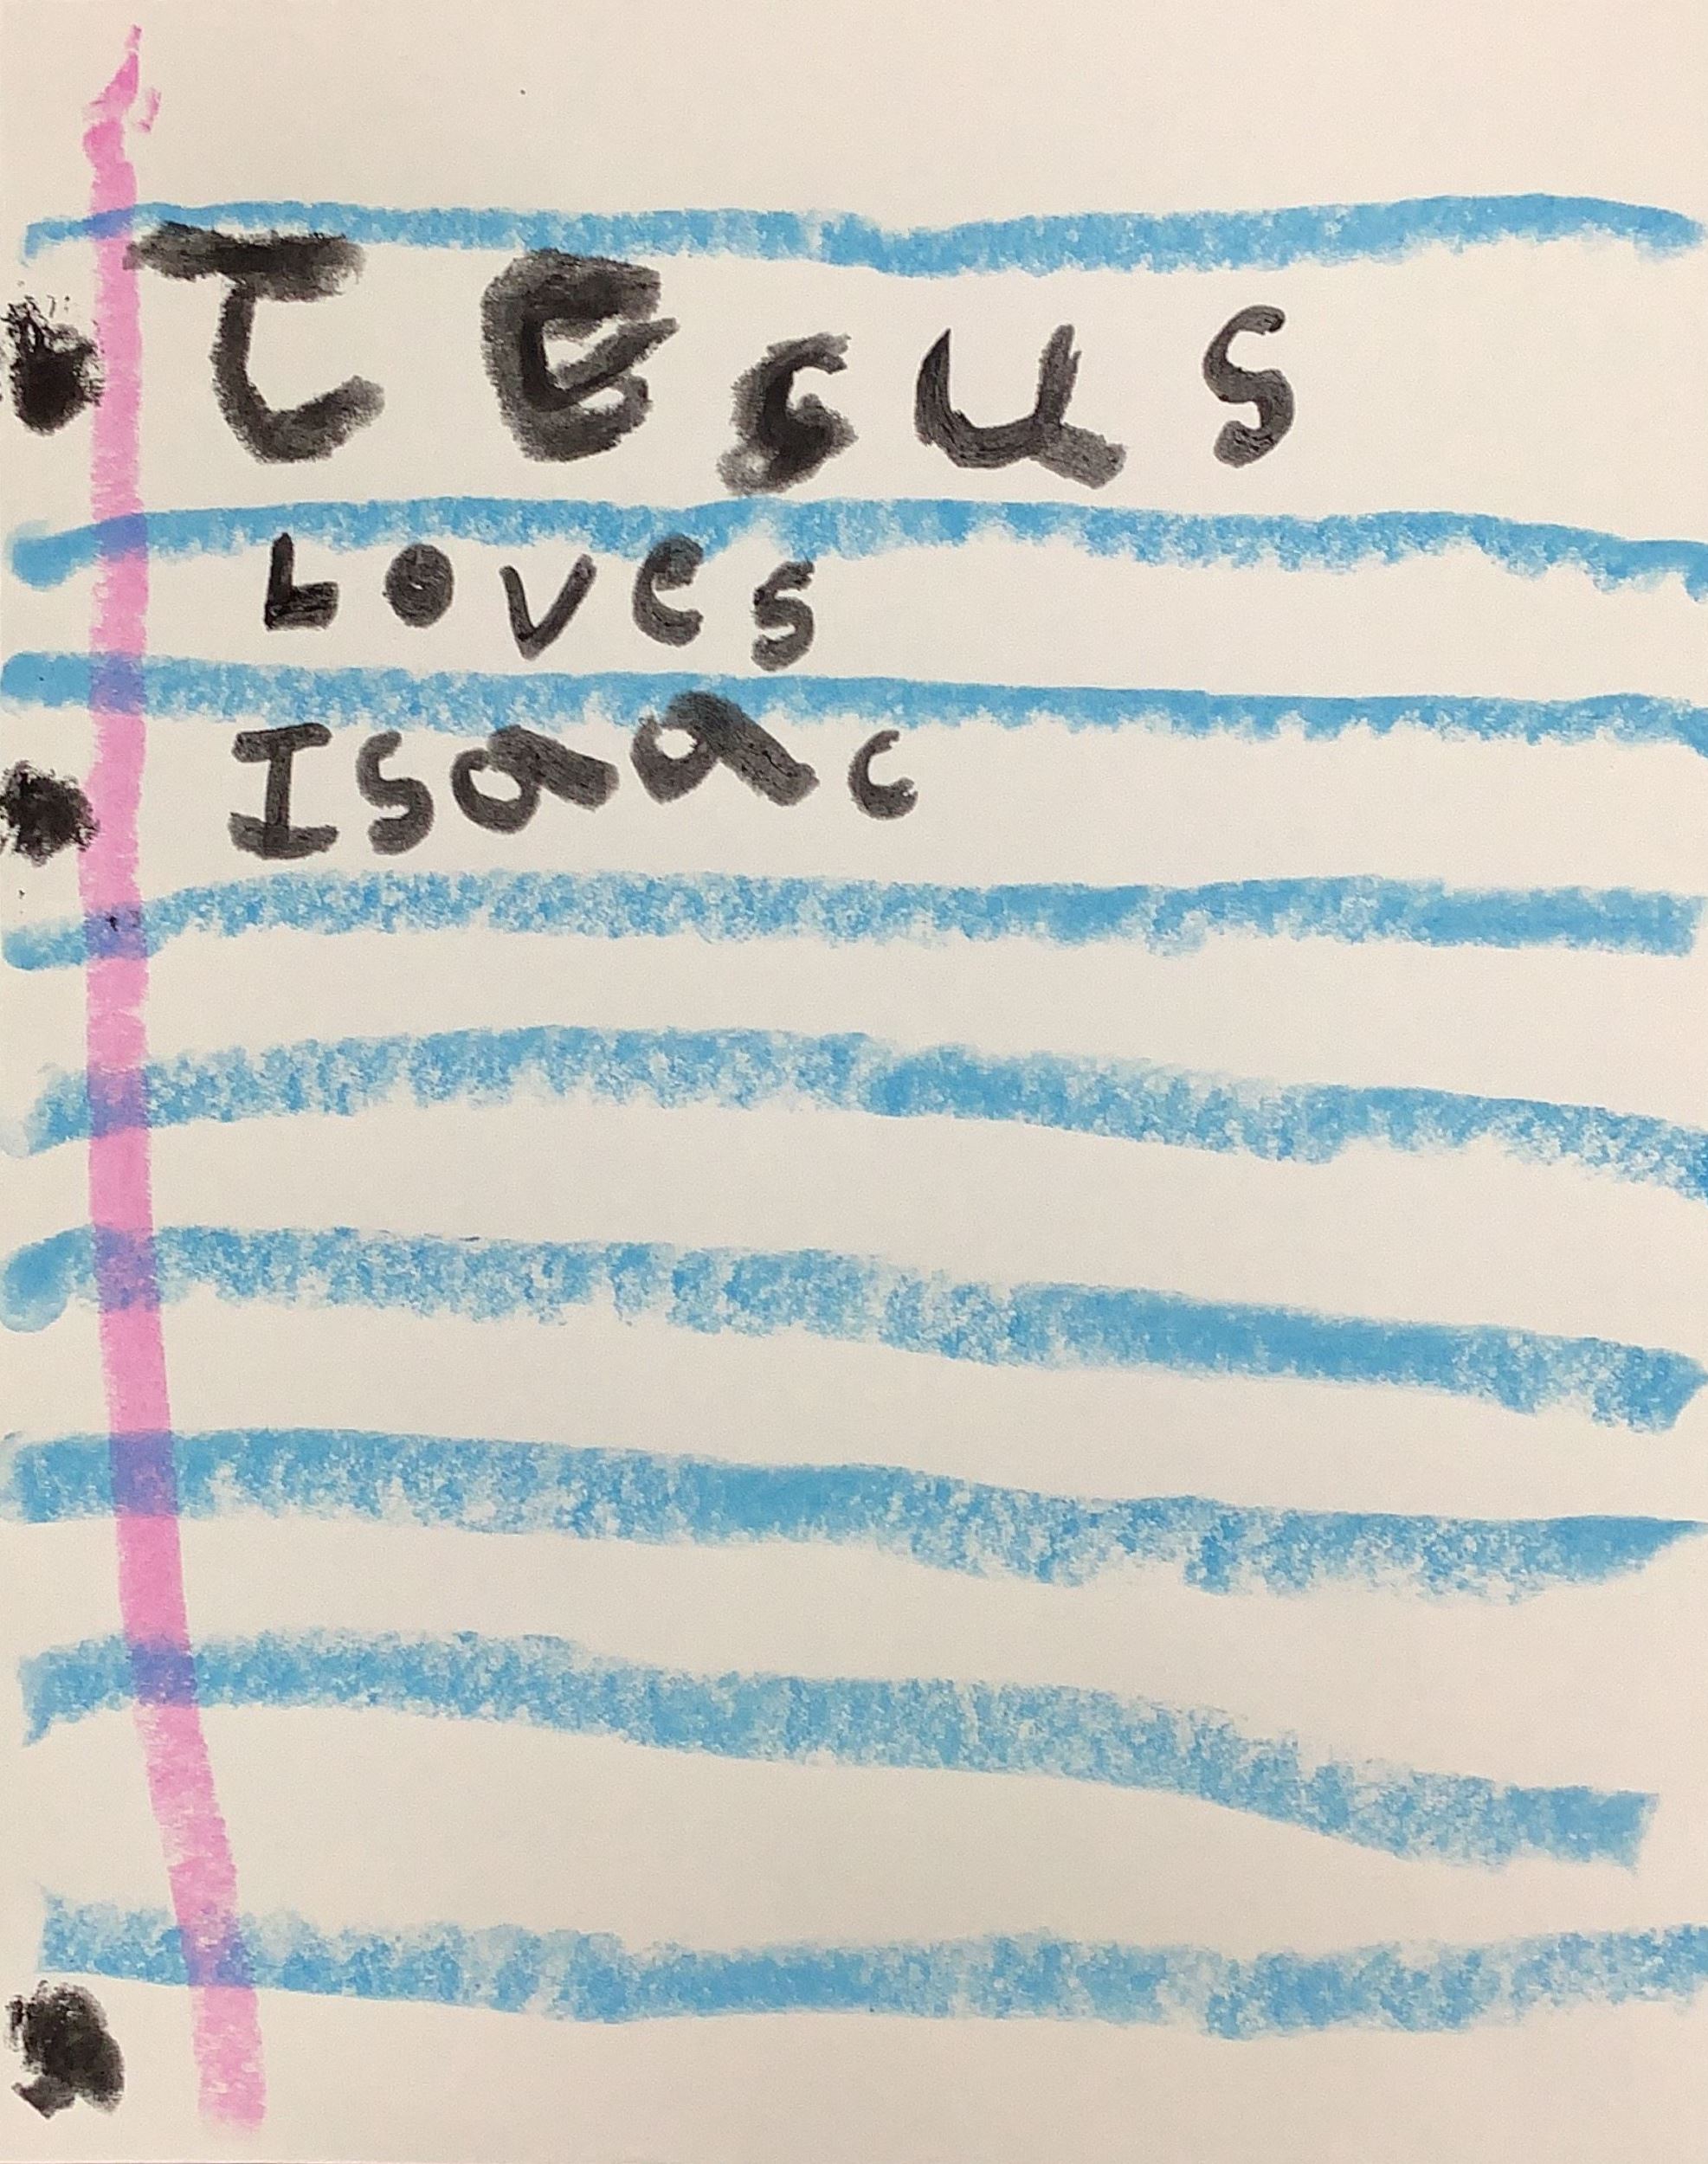 JEsus
Loves
Isaac